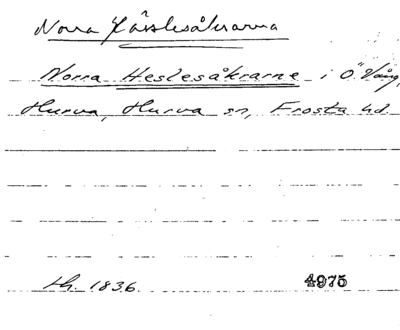 Norra Hässlesåkrarna
Norra Heslesåkrarne i Ö. Vång,
Hurva, Hurva sn, Frosta hd.
Lh. 1836. 4975